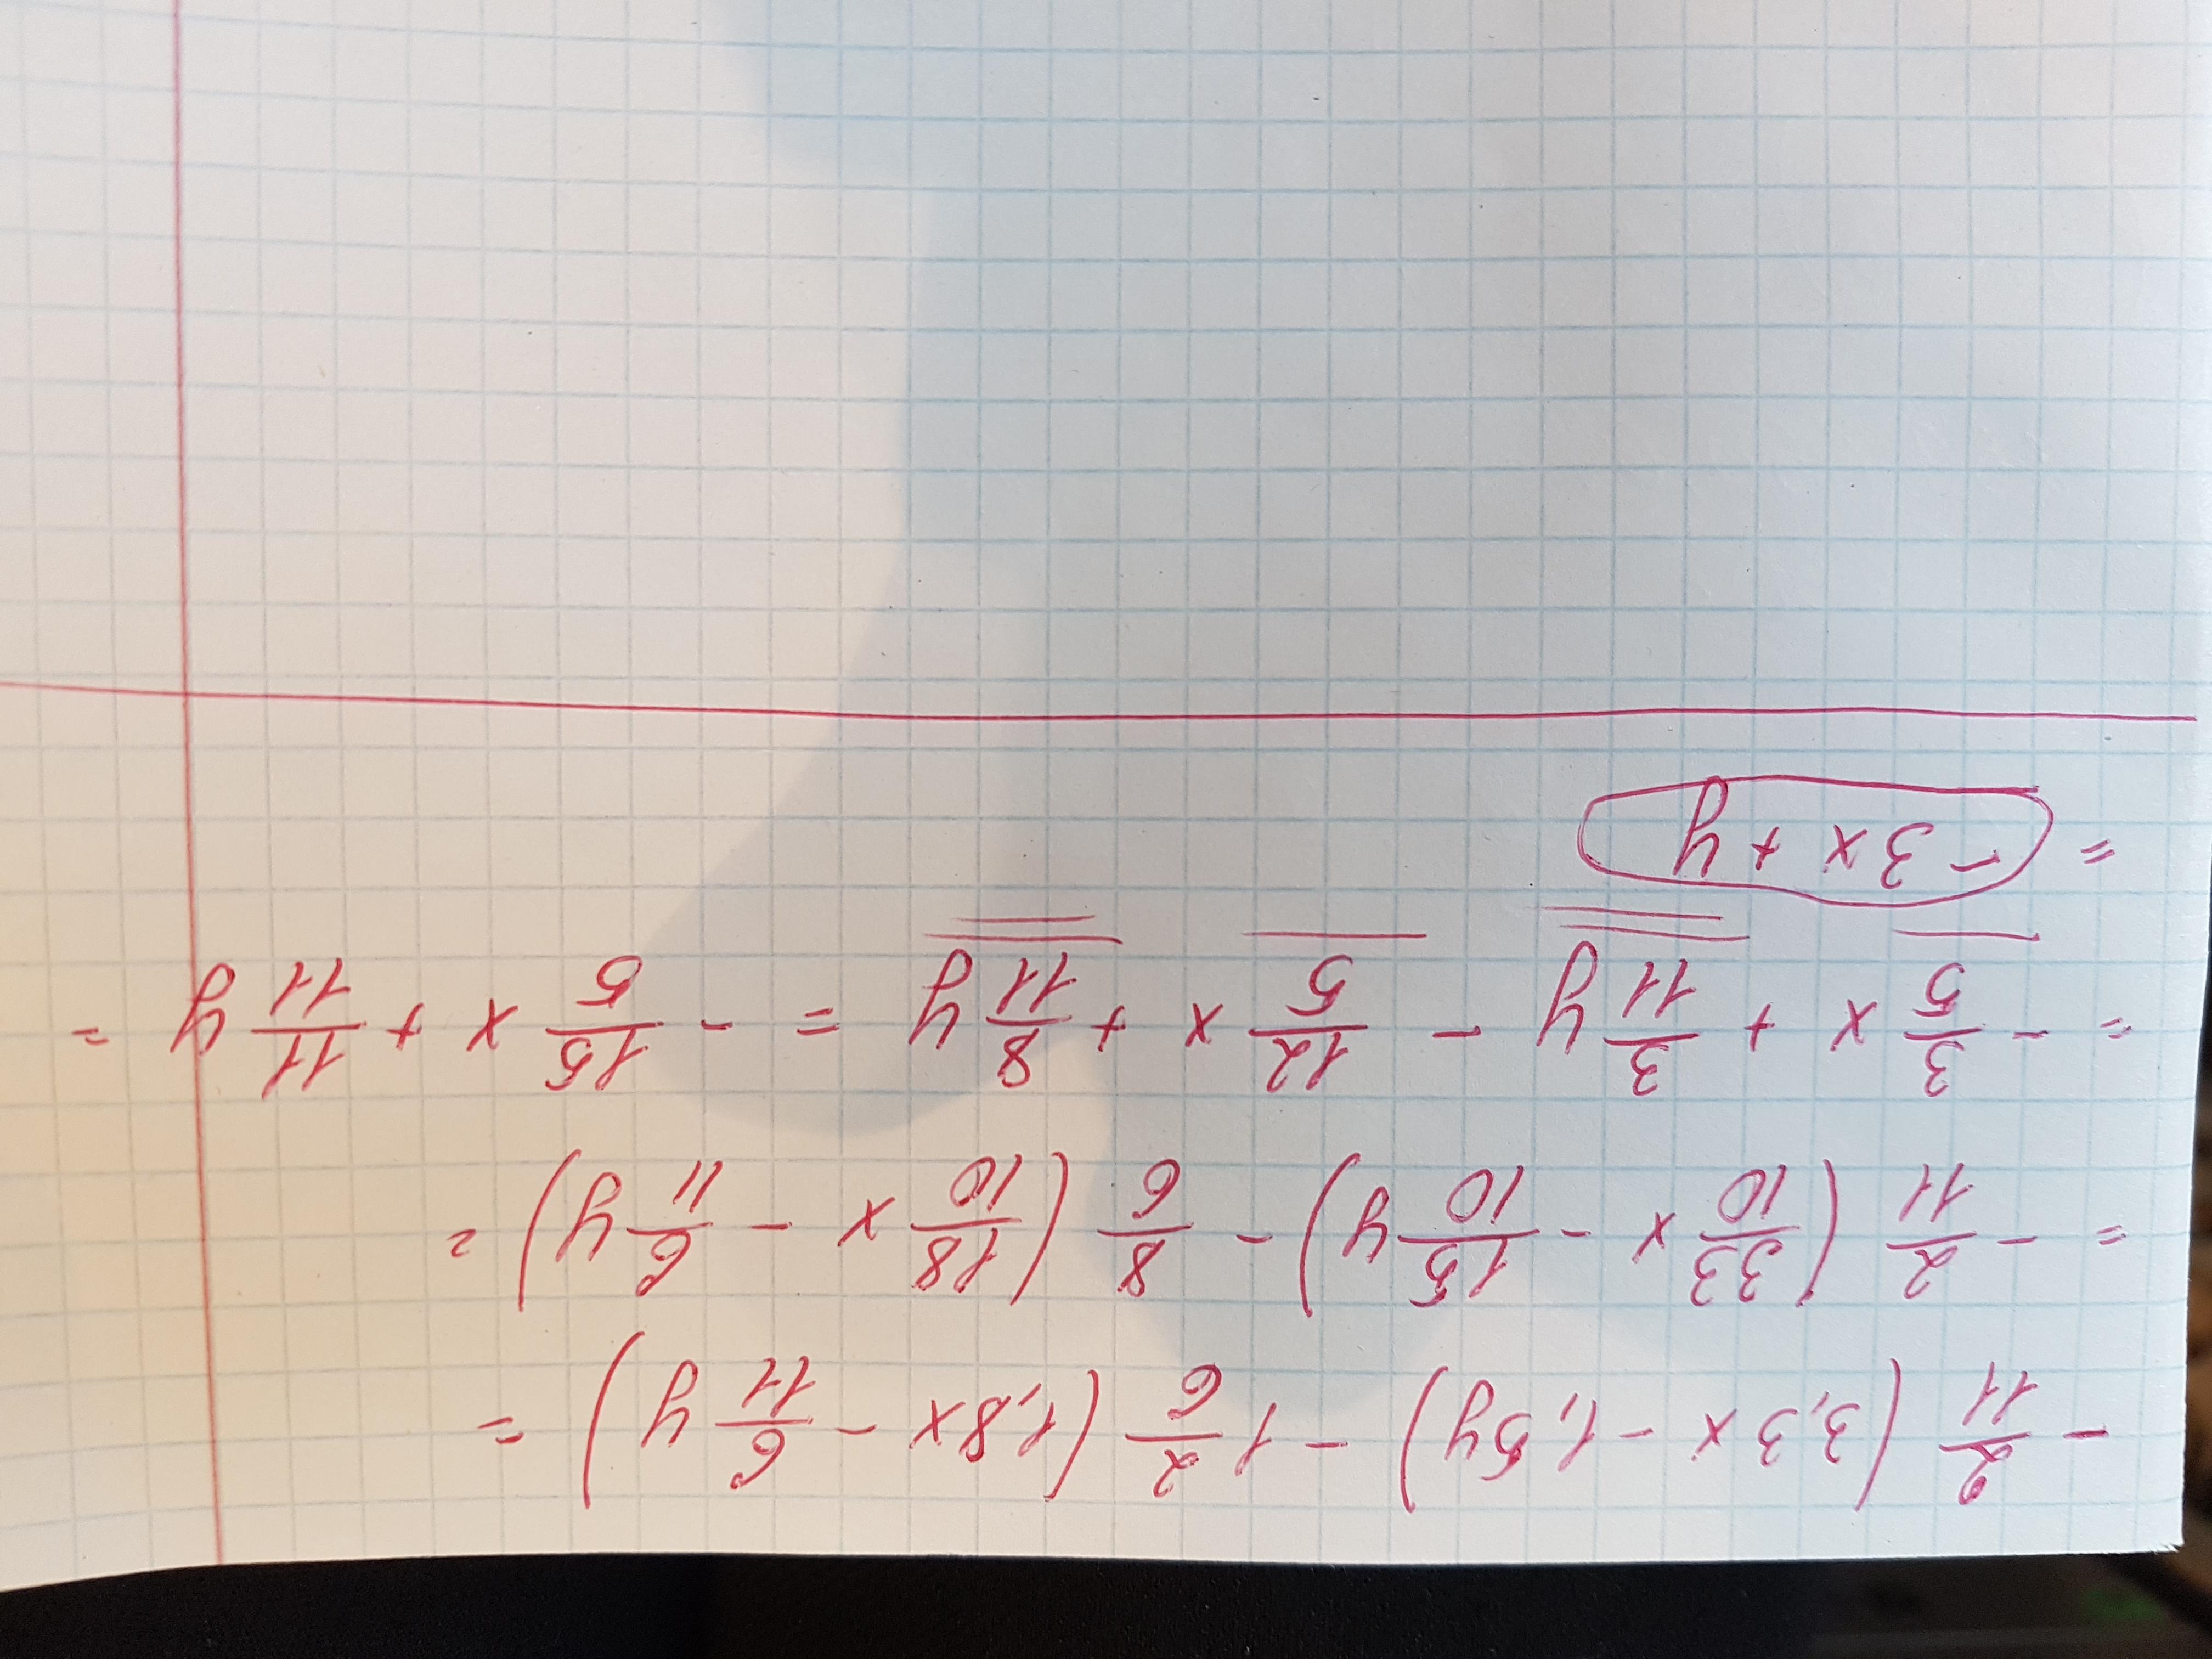 - 2/11 (3,3x - 1,5y) - 1 2/6 (1,8x - 6/11 y) =
= - 2/11 (33/10 x - 15/10 y) - 8/6 (18/10 x - 6/11 y) =
= - 3/5 x + 3/11 y - 12/5 x + 8/11 y = - 15/5 x + 11/11 y =
= - 3x + y